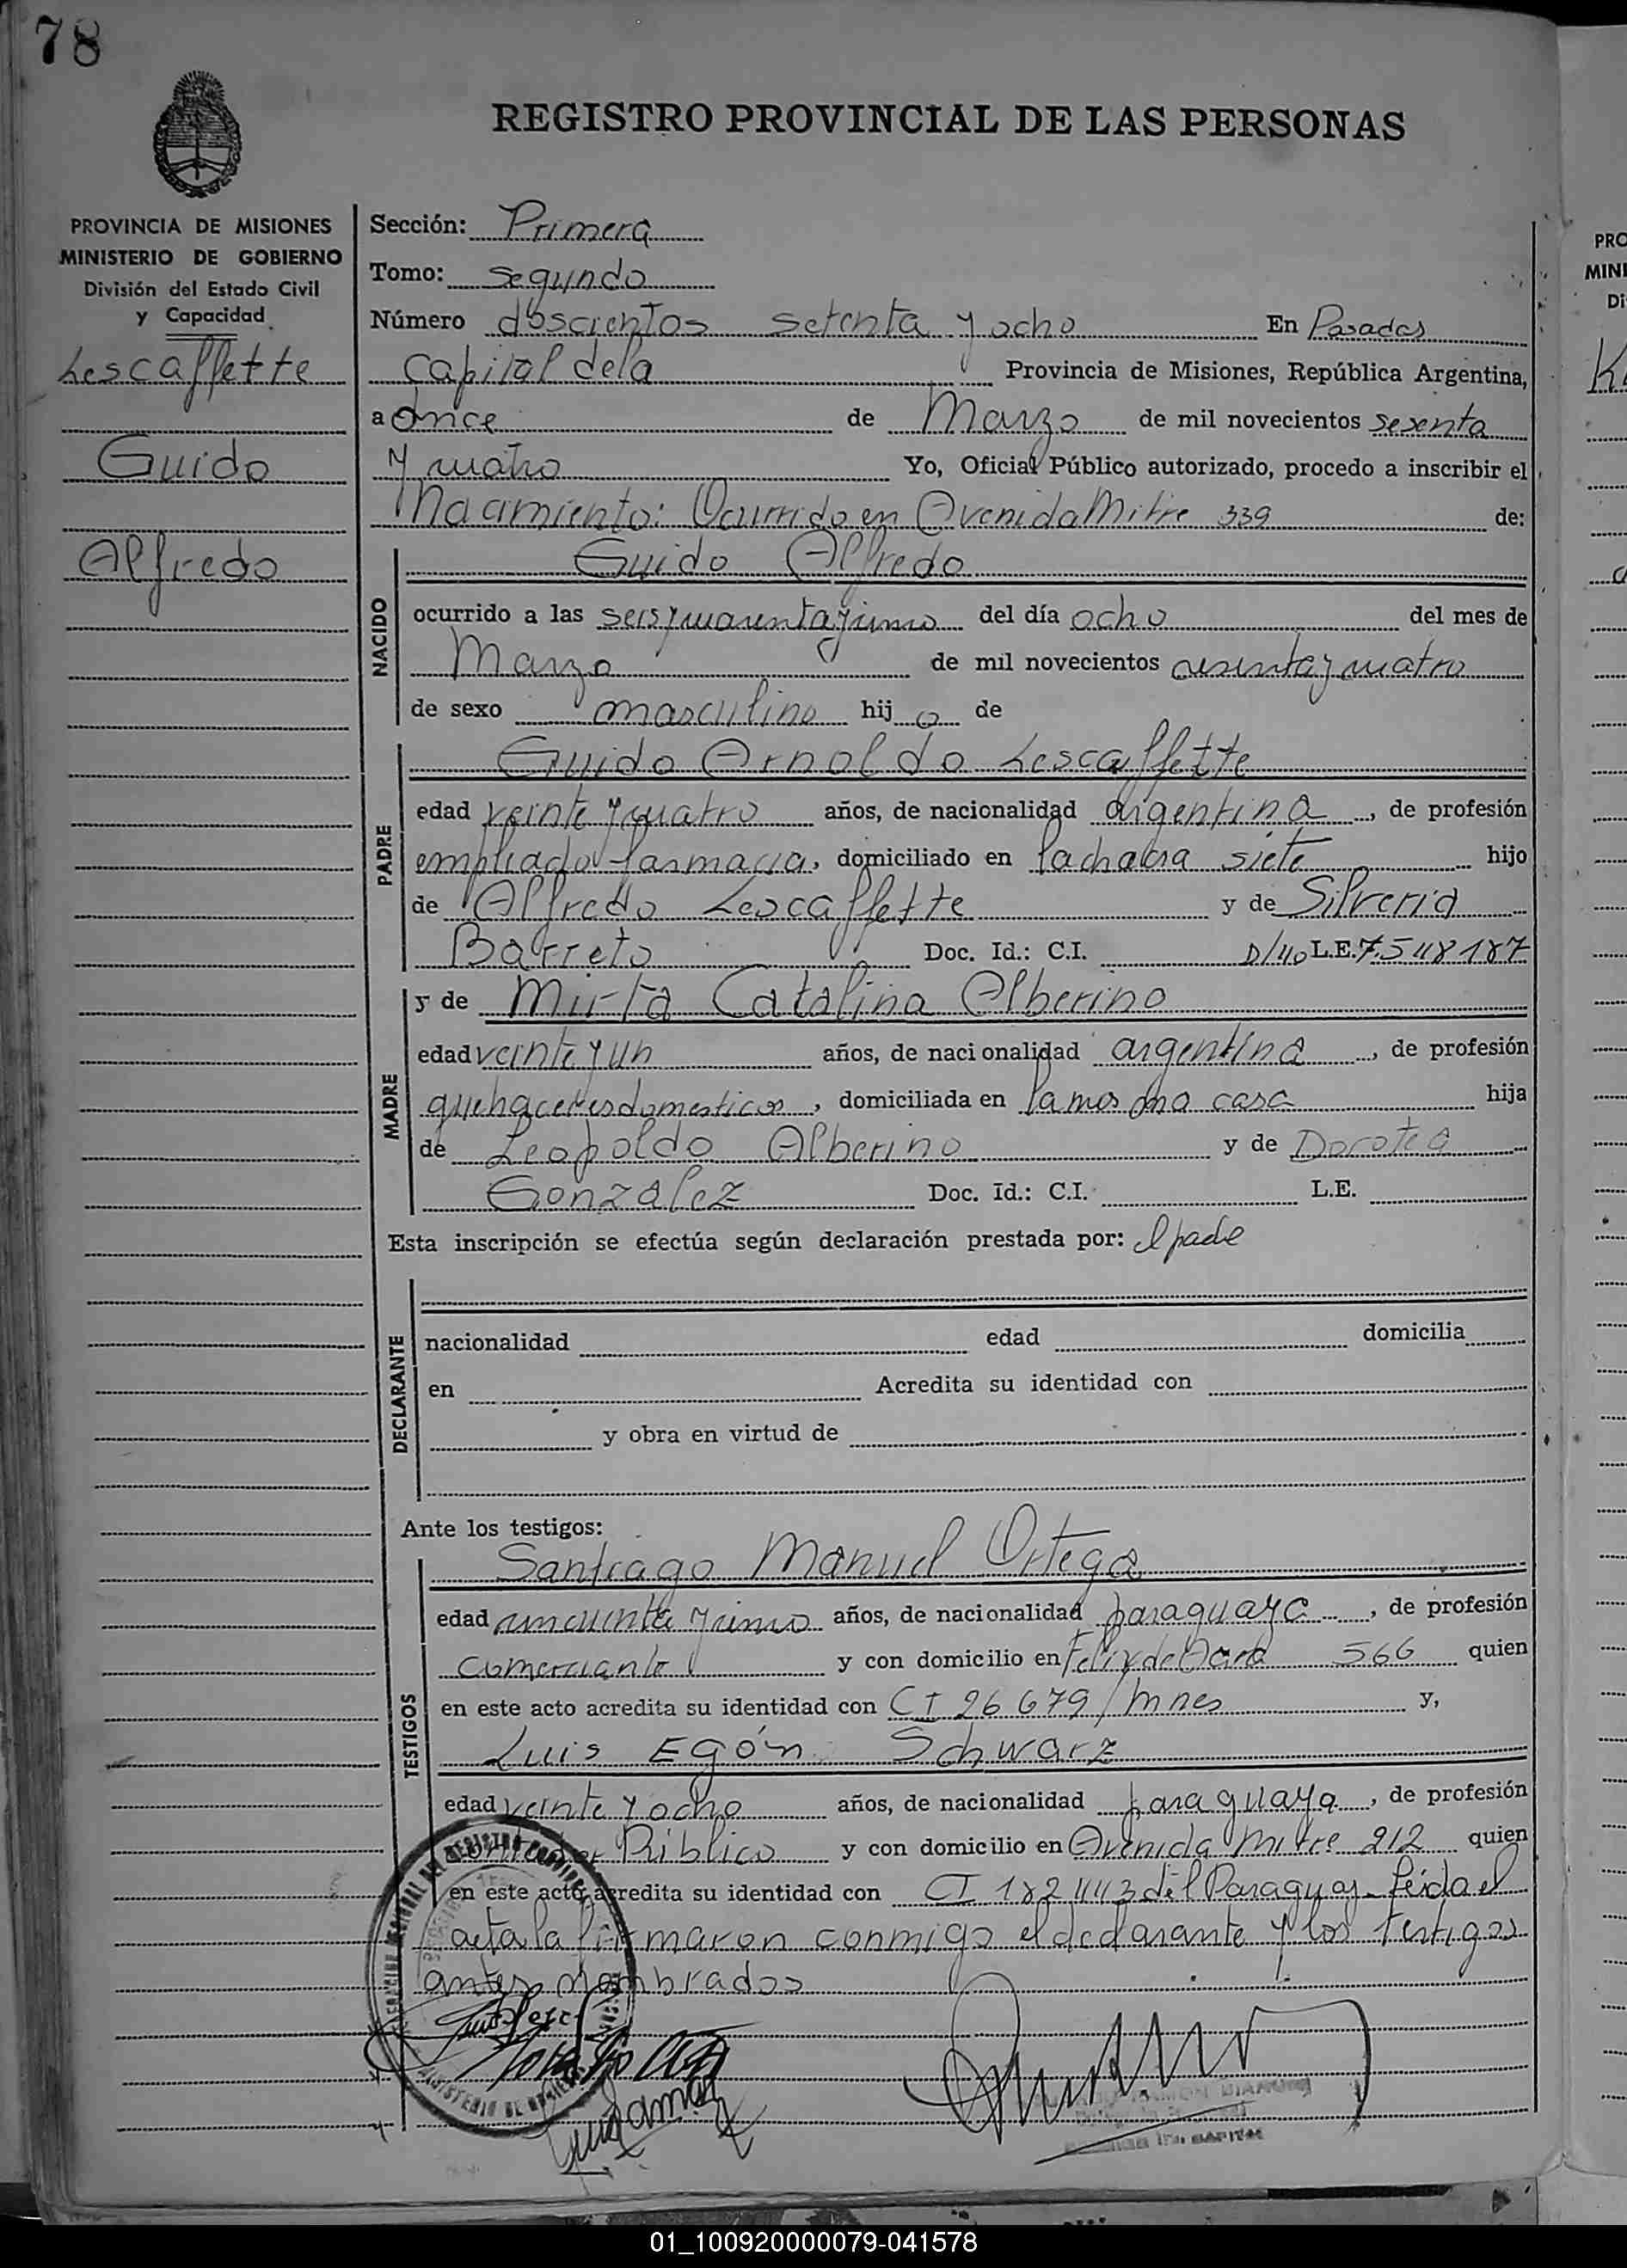 78
REGISTRO PROVINCIAL DE LAS PERSONAS
PROVINCIA DE MISIONES
MINISTERIO DE GOBIERNO
División del Estado Civil
y Capacidad
Lescaffette
Guido
Alfredo
Sección: Primera
Tomo: Segundo
Número doscientos setenta y ocho En Posadas
Capital dela Provincia de Misiones, República Argentina,
a Once de Marzo de mil novecientos sesenta
y cuatro Yo, Oficial Público autorizado, procedo a inscribir el
Nacimiento: Ocurrido en Avenida Mitre 339 de:
NACIDO
Guido Alfredo
ocurrido a las seis y cuarenta y cinco del día ocho del mes de
Marzo de mil novecientos sesenta y cuatro
de sexo masculino hij o de
PADRE
Guido Arnoldo Lescaffette
edad veinte y cuatro años, de nacionalidad argentina, de profesión
empleado farmacia, domiciliado en la chacra siete hijo
de Alfredo Lescaffette y de Silveria
Barreto Doc. Id.: C.I. D/40 L.E. 7.548187
MADRE
y de Mirta Catalina Alberino
edad veinte y un años, de nacionalidad argentina, de profesión
quehaceres domesticos, domiciliada en la misma casa hija
de Leopoldo Alberino y de Dorotea
Gonzalez Doc. Id.: C.I. L.E.
Esta inscripción se efectúa según declaración prestada por: el padre
DECLARANTE
nacionalidad edad domicilia
en Acredita su identidad con
y obra en virtud de
Ante los testigos:
TESTIGOS
Santiago Manuel Ortega
edad cincuenta y cinco años, de nacionalidad paraguaya, de profesión
Comerciante y con domicilio en Felix de Azara 566 quien
en este acto acredita su identidad con CI 26679/Mnes y,
Luis Egón Schwarz
edad veinte y ocho años, de nacionalidad paraguaya, de profesión
Contador Público y con domicilio en Avenida Mitre 212 quien
en este acto acredita su identidad con CI 182443 del Paraguay. Leida el
acta la firmaron conmigo el declarante y los testigos
antes nombrados
PRO
MINI
Di
01_100920000079-041578